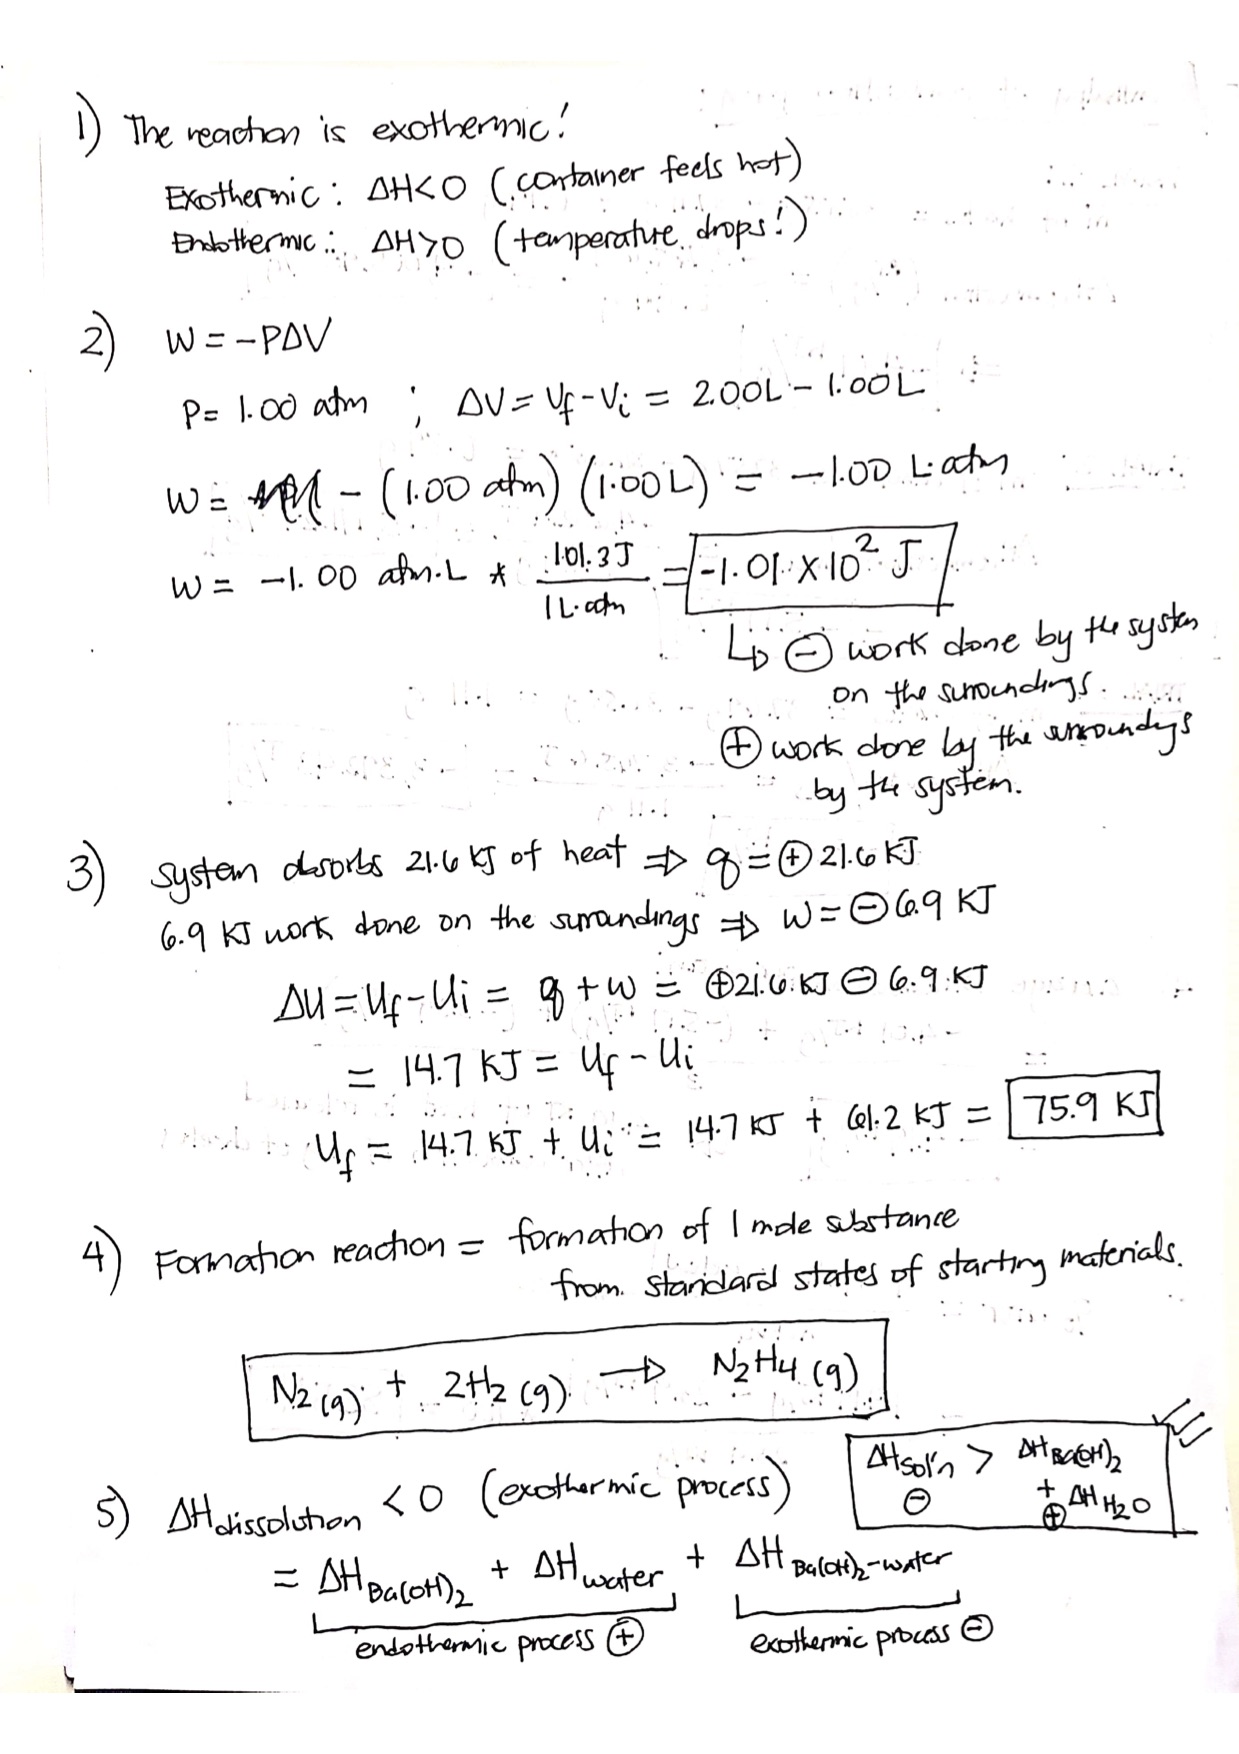 1) The reaction is exothermic!
Exothermic: ΔH<0 (container feels hot)
Endothermic: ΔH>0 (temperature drops!)
2) W = -PΔV
P = 1.00 atm ; ΔV = Vf - Vi = 2.00L - 1.00L
W = - (1.00 atm) (1.00L) = -1.00 L·atm
W = -1.00 atm·L * 101.3 J / 1 L·atm = -1.01 x 10² J
↳ ⊖ work done by the system
on the surroundings.
⊕ work done by the surroundings
by the system.
3) system absorbs 21.6 kJ of heat ⇒ q = ⊕ 21.6 kJ
6.9 kJ work done on the surroundings ⇒ W = ⊖ 6.9 kJ
ΔU = Uf - Ui = q + w = ⊕21.6 kJ ⊖ 6.9 kJ
= 14.7 kJ = Uf - Ui
Uf = 14.7 kJ + Ui = 14.7 kJ + 61.2 kJ = 75.9 kJ
4) Formation reaction = formation of 1 mole substance
from standard states of starting materials.
N₂(g) + 2H₂(g) → N₂H₄(g)
5) ΔHdissolution < 0 (exothermic process)
ΔHsol'n > ΔHBa(OH)₂
⊖ + ΔHH₂O
⊕
= ΔHBa(OH)₂ + ΔHwater + ΔHBa(OH)₂-water
endothermic process ⊕ exothermic process ⊖